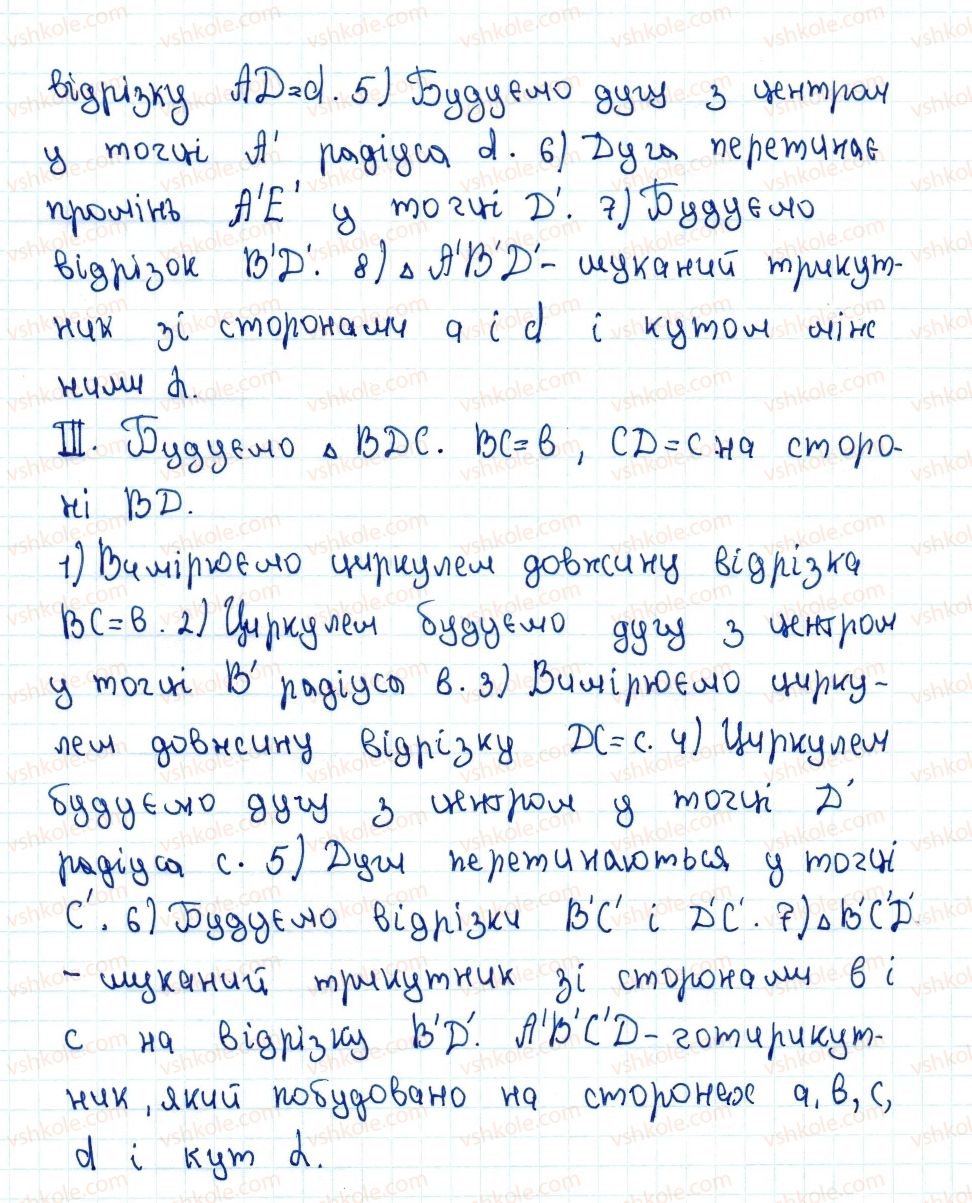 відрізку AD=d. 5) Будуємо дугу з центром
у точці A' радіуса d. 6) Дуга перетинає
промінь A'E' у точці D'. 7) Будуємо
відрізок B'D'. 8) △ A'B'D' - шуканий трикут-
ник зі сторонами a і d і кутом між
ними α.
III. Будуємо △ BDC. BC=в, CD=c на сторо-
ні BD.
1) Вимірюємо циркулем довжину відрізка
BC=в. 2) Циркулем будуємо дугу з центром
у точці B' радіуса в. 3) Вимірюємо цирку-
лем довжину відрізку DC=c. 4) Циркулем
будуємо дугу з центром у точці D'
радіуса c. 5) Дуги перетинаються у точці
C'. 6) Будуємо відрізки B'C' і D'C'. 7) △ B'C'D'.
- шуканий трикутник зі сторонами в і
c на відрізку B'D'. A'B'C'D - чотирикут-
ник, який побудовано на сторонах a, в, c,
d і кут α.